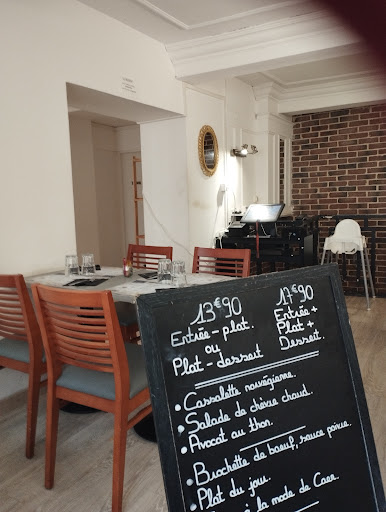 13€90
Entrée-plat.
ou
Plat-dessert
17€90
Entrée +
Plat +
Dessert.
• Cassolette norvégienne.
• Salade de chèvre chaud.
• Avocat au thon.
• Brochette de bœuf, sauce poivre.
• Plat du jour.
la mode de Caen.